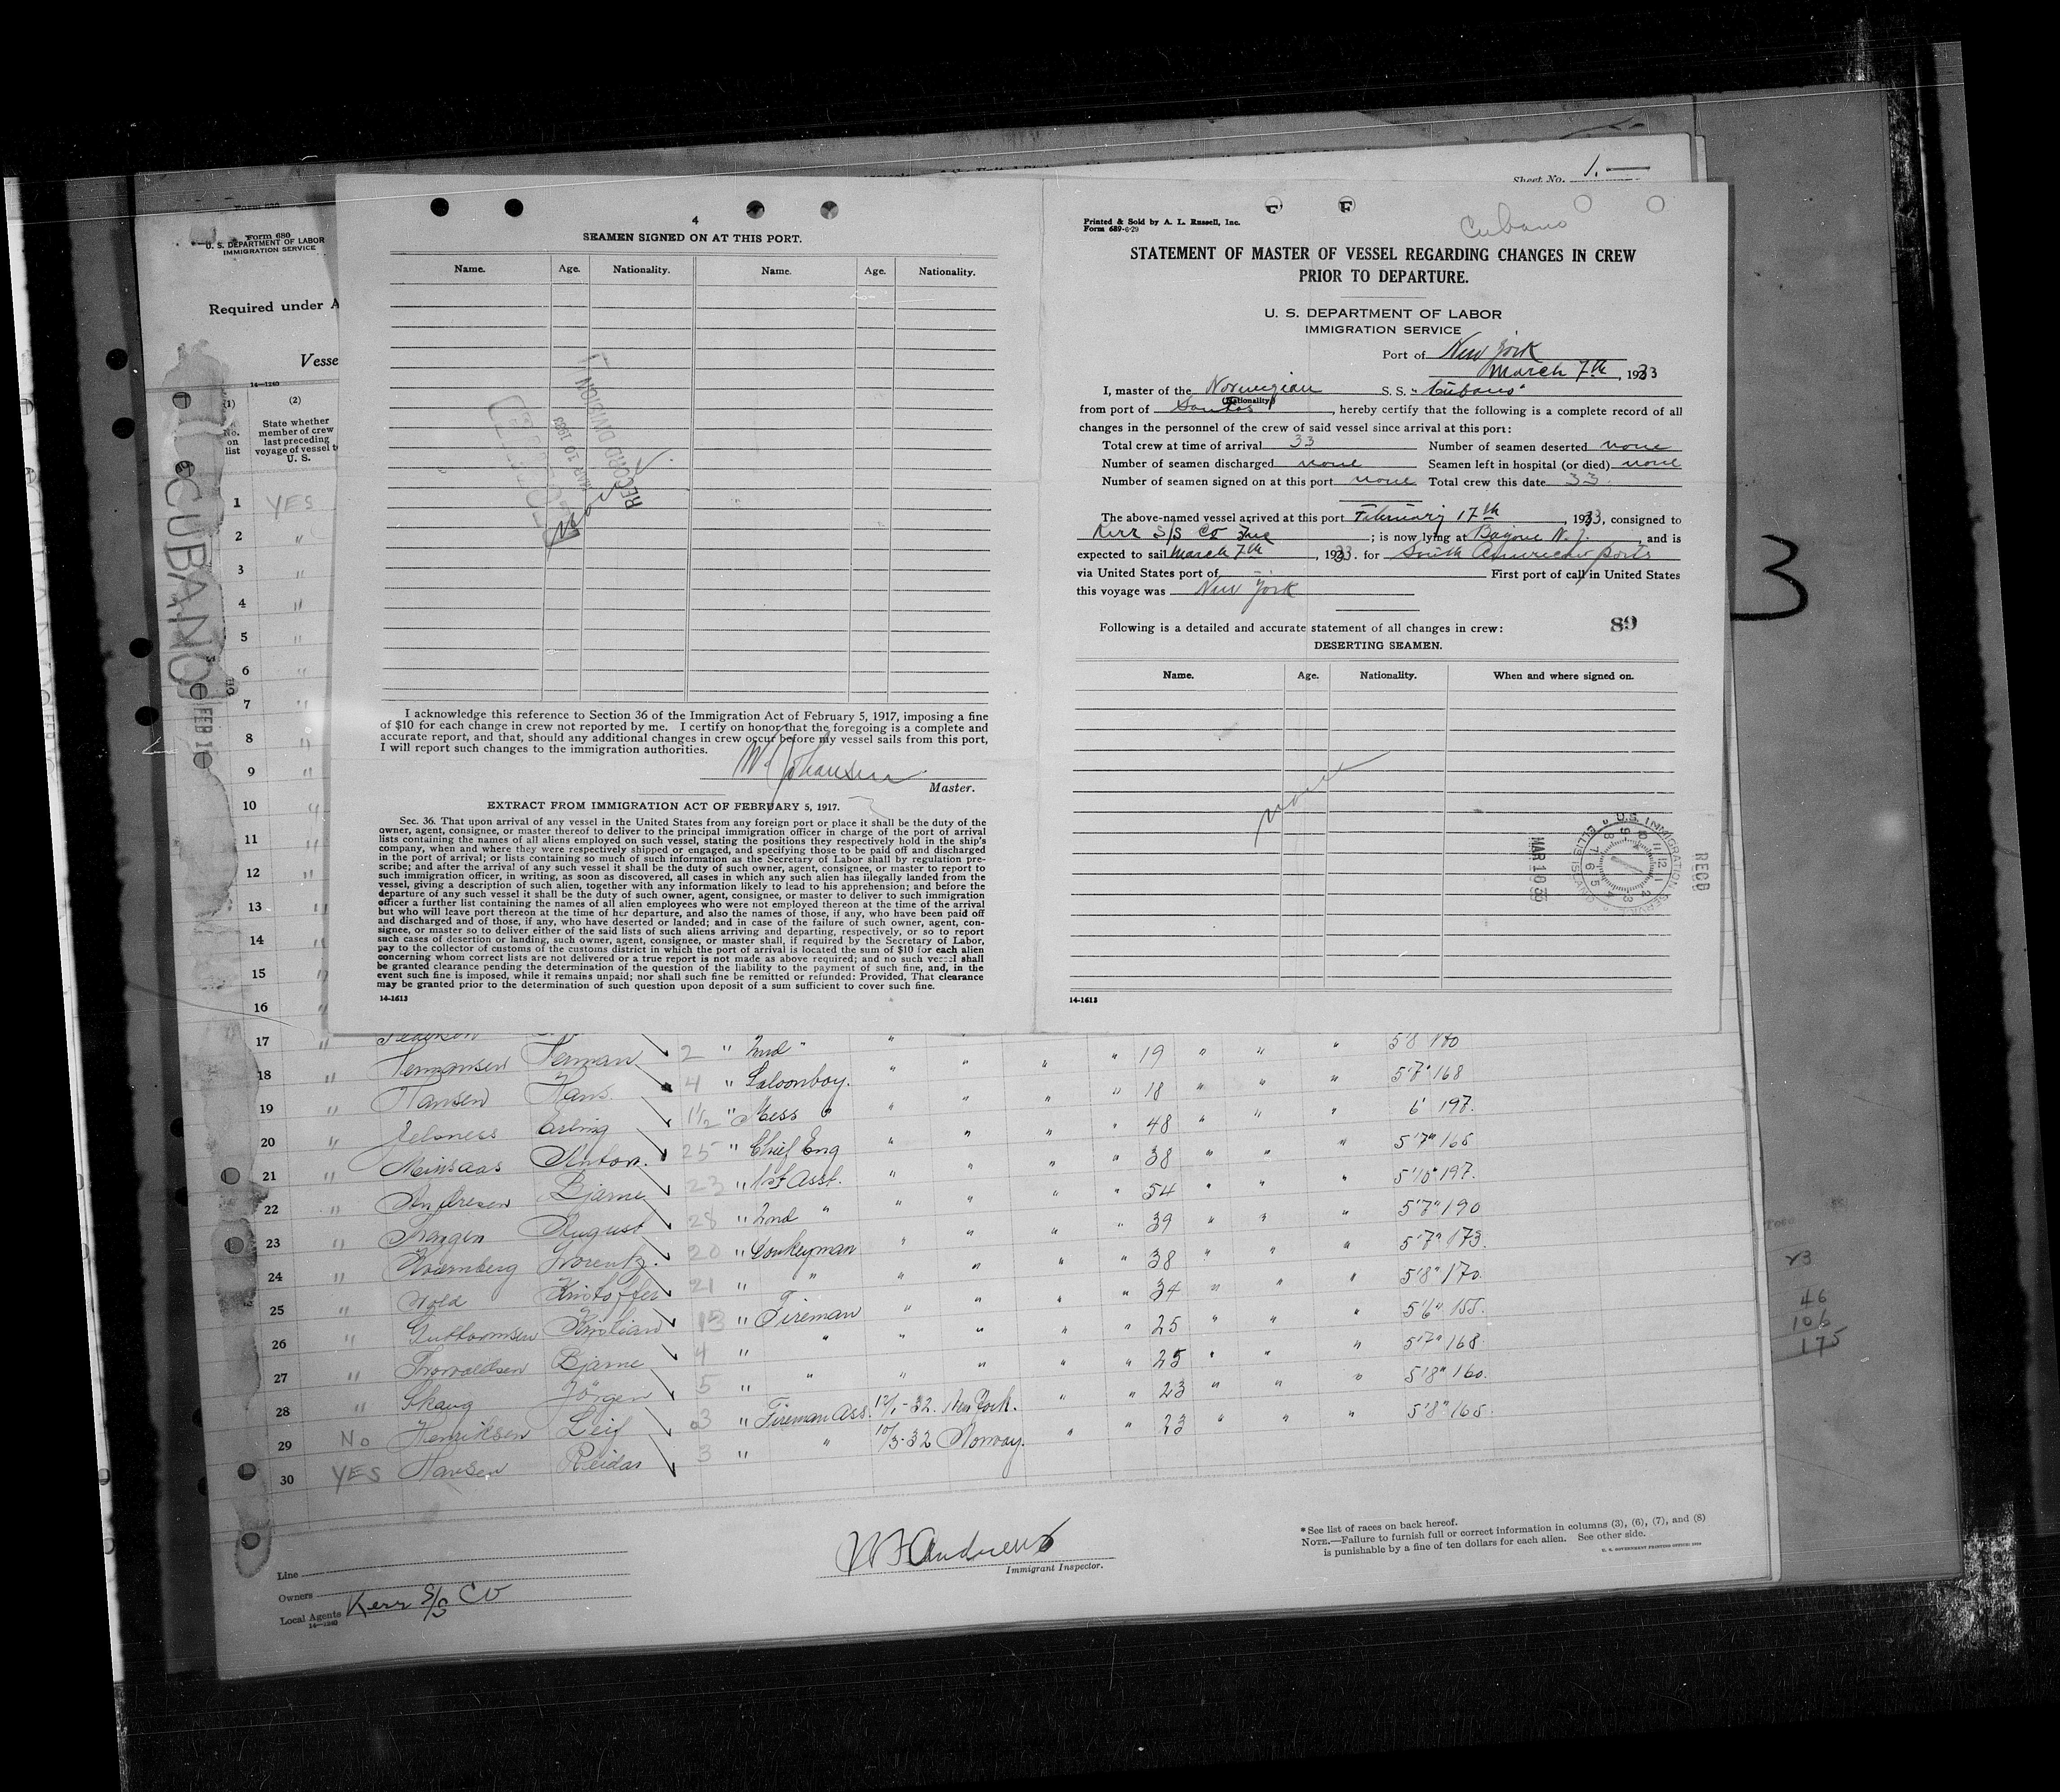 Sheet No. 1.
Form 680
U. S. DEPARTMENT OF LABOR
IMMIGRATION SERVICE
Required under A
Vesse
14—1240
(1) (2)
No. on list
State whether member of crew last preceding voyage of vessel to U. S.
CUBANO
FEB 1
1 YES
2 "
3 "
4 "
5 "
6 "
7 "
8 "
9 "
10 "
11 "
12 "
13 "
14 "
15 "
16 "
4
SEAMEN SIGNED ON AT THIS PORT.
Name. Age. Nationality. Name. Age. Nationality.
RECORD DIVISION
MAR 10 1933
None
I acknowledge this reference to Section 36 of the Immigration Act of February 5, 1917, imposing a fine
of $10 for each change in crew not reported by me. I certify on honor that the foregoing is a complete and
accurate report, and that, should any additional changes in crew occur before my vessel sails from this port,
I will report such changes to the immigration authorities.
Johansen
Master.
EXTRACT FROM IMMIGRATION ACT OF FEBRUARY 5, 1917.
Sec. 36. That upon arrival of any vessel in the United States from any foreign port or place it shall be the duty of the
owner, agent, consignee, or master thereof to deliver to the principal immigration officer in charge of the port of arrival
lists containing the names of all aliens employed on such vessel, stating the positions they respectively hold in the ship's
company, when and where they were respectively shipped or engaged, and specifying those to be paid off and discharged
in the port of arrival; or lists containing so much of such information as the Secretary of Labor shall by regulation pre-
scribe; and after the arrival of any such vessel it shall be the duty of such owner, agent, consignee, or master to report to
such immigration officer, in writing, as soon as discovered, all cases in which any such alien has illegally landed from the
vessel, giving a description of such alien, together with any information likely to lead to his apprehension; and before the
departure of any such vessel it shall be the duty of such owner, agent, consignee, or master to deliver to such immigration
officer a further list containing the names of all alien employees who were not employed thereon at the time of the arrival
but who will leave port thereon at the time of her departure, and also the names of those, if any, who have been paid off
and discharged and of those, if any, who have deserted or landed; and in case of the failure of such owner, agent, con-
signee, or master so to deliver either of the said lists of such aliens arriving and departing, respectively, or so to report
such cases of desertion or landing, such owner, agent, consignee, or master shall, if required by the Secretary of Labor,
pay to the collector of customs of the customs district in which the port of arrival is located the sum of $10 for each alien
concerning whom correct lists are not delivered or a true report is not made as above required; and no such vessel shall
be granted clearance pending the determination of the question of the liability to the payment of such fine, and, in the
event such fine is imposed, while it remains unpaid; nor shall such fine be remitted or refunded: Provided, That clearance
may be granted prior to the determination of such question upon deposit of a sum sufficient to cover such fine.
14-1613
Printed & Sold by A. L. Russell, Inc.
Form 689-6-29
Cubano
STATEMENT OF MASTER OF VESSEL REGARDING CHANGES IN CREW
PRIOR TO DEPARTURE.
U. S. DEPARTMENT OF LABOR
IMMIGRATION SERVICE
Port of New York
March 7th, 1933
I, master of the Norwegian S. S. "Cubano"
(Nationality)
from port of Santos, hereby certify that the following is a complete record of all
changes in the personnel of the crew of said vessel since arrival at this port:
Total crew at time of arrival 33 Number of seamen deserted none
Number of seamen discharged none Seamen left in hospital (or died) none
Number of seamen signed on at this port none Total crew this date 33.
The above-named vessel arrived at this port February 17th, 1933, consigned to
Kerr S/S Co Inc; is now lying at Bayone N. J., and is
expected to sail March 7th, 1933. for South American ports
via United States port of First port of call in United States
this voyage was New York
Following is a detailed and accurate statement of all changes in crew: 89
DESERTING SEAMEN.
Name. Age. Nationality. When and where signed on.
none
MAR 10 33
U.S. IMMIGRATION SERVICE ELLIS ISLAND
RECD
14-1613
3
17 "
18 " Hermansen Herman 2 " 2nd " " " " " 19 " " " 5'8 140
19 " Hansen Hans 4 " Saloonboy. " " " " 18 " " " 5'7" 168
20 " Erling 1 1/2 " Mess " " " " " 48 " " " 6' 197.
21 " Anton. 25 " Chief Eng " " " " 38 " " " 5'7" 165
22 " Andresen Bjarne 23 " 1st Asst. " " " " 54 " " " 5'10" 197.
23 " August 28 " 2nd " " " " " 39 " " " 5'7" 190
24 " Lorentz. 20 " Donkeyman " " " " 38 " " " 5'7" 173.
25 " Kristoffer 21 " " " " " " 34 " " " 5'8" 170.
26 " Guttormsen Kristian 13 " Fireman " " " " 25 " " " 5'6" 155.
27 " Thorvaldsen Bjarne 4 " " " " " " 25 " " " 5'7" 168.
28 " Skaug Jörgen 5 " " " " " " 23 " " " 5'8" 160.
29 No Henriksen Leif 3 " Fireman Ass. 12/1-32. New York. " " 23 " " " 5'8" 165.
30 YES Hansen Reidar 3 " " 10/3-32 Norway.
23
46
106
175
Line
Owners
Local Agents Kerr S/S Co
14—1240
W F Andrews
Immigrant Inspector.
* See list of races on back hereof.
NOTE.—Failure to furnish full or correct information in columns (3), (6), (7), and (8)
is punishable by a fine of ten dollars for each alien. See other side.
U. S. GOVERNMENT PRINTING OFFICE: